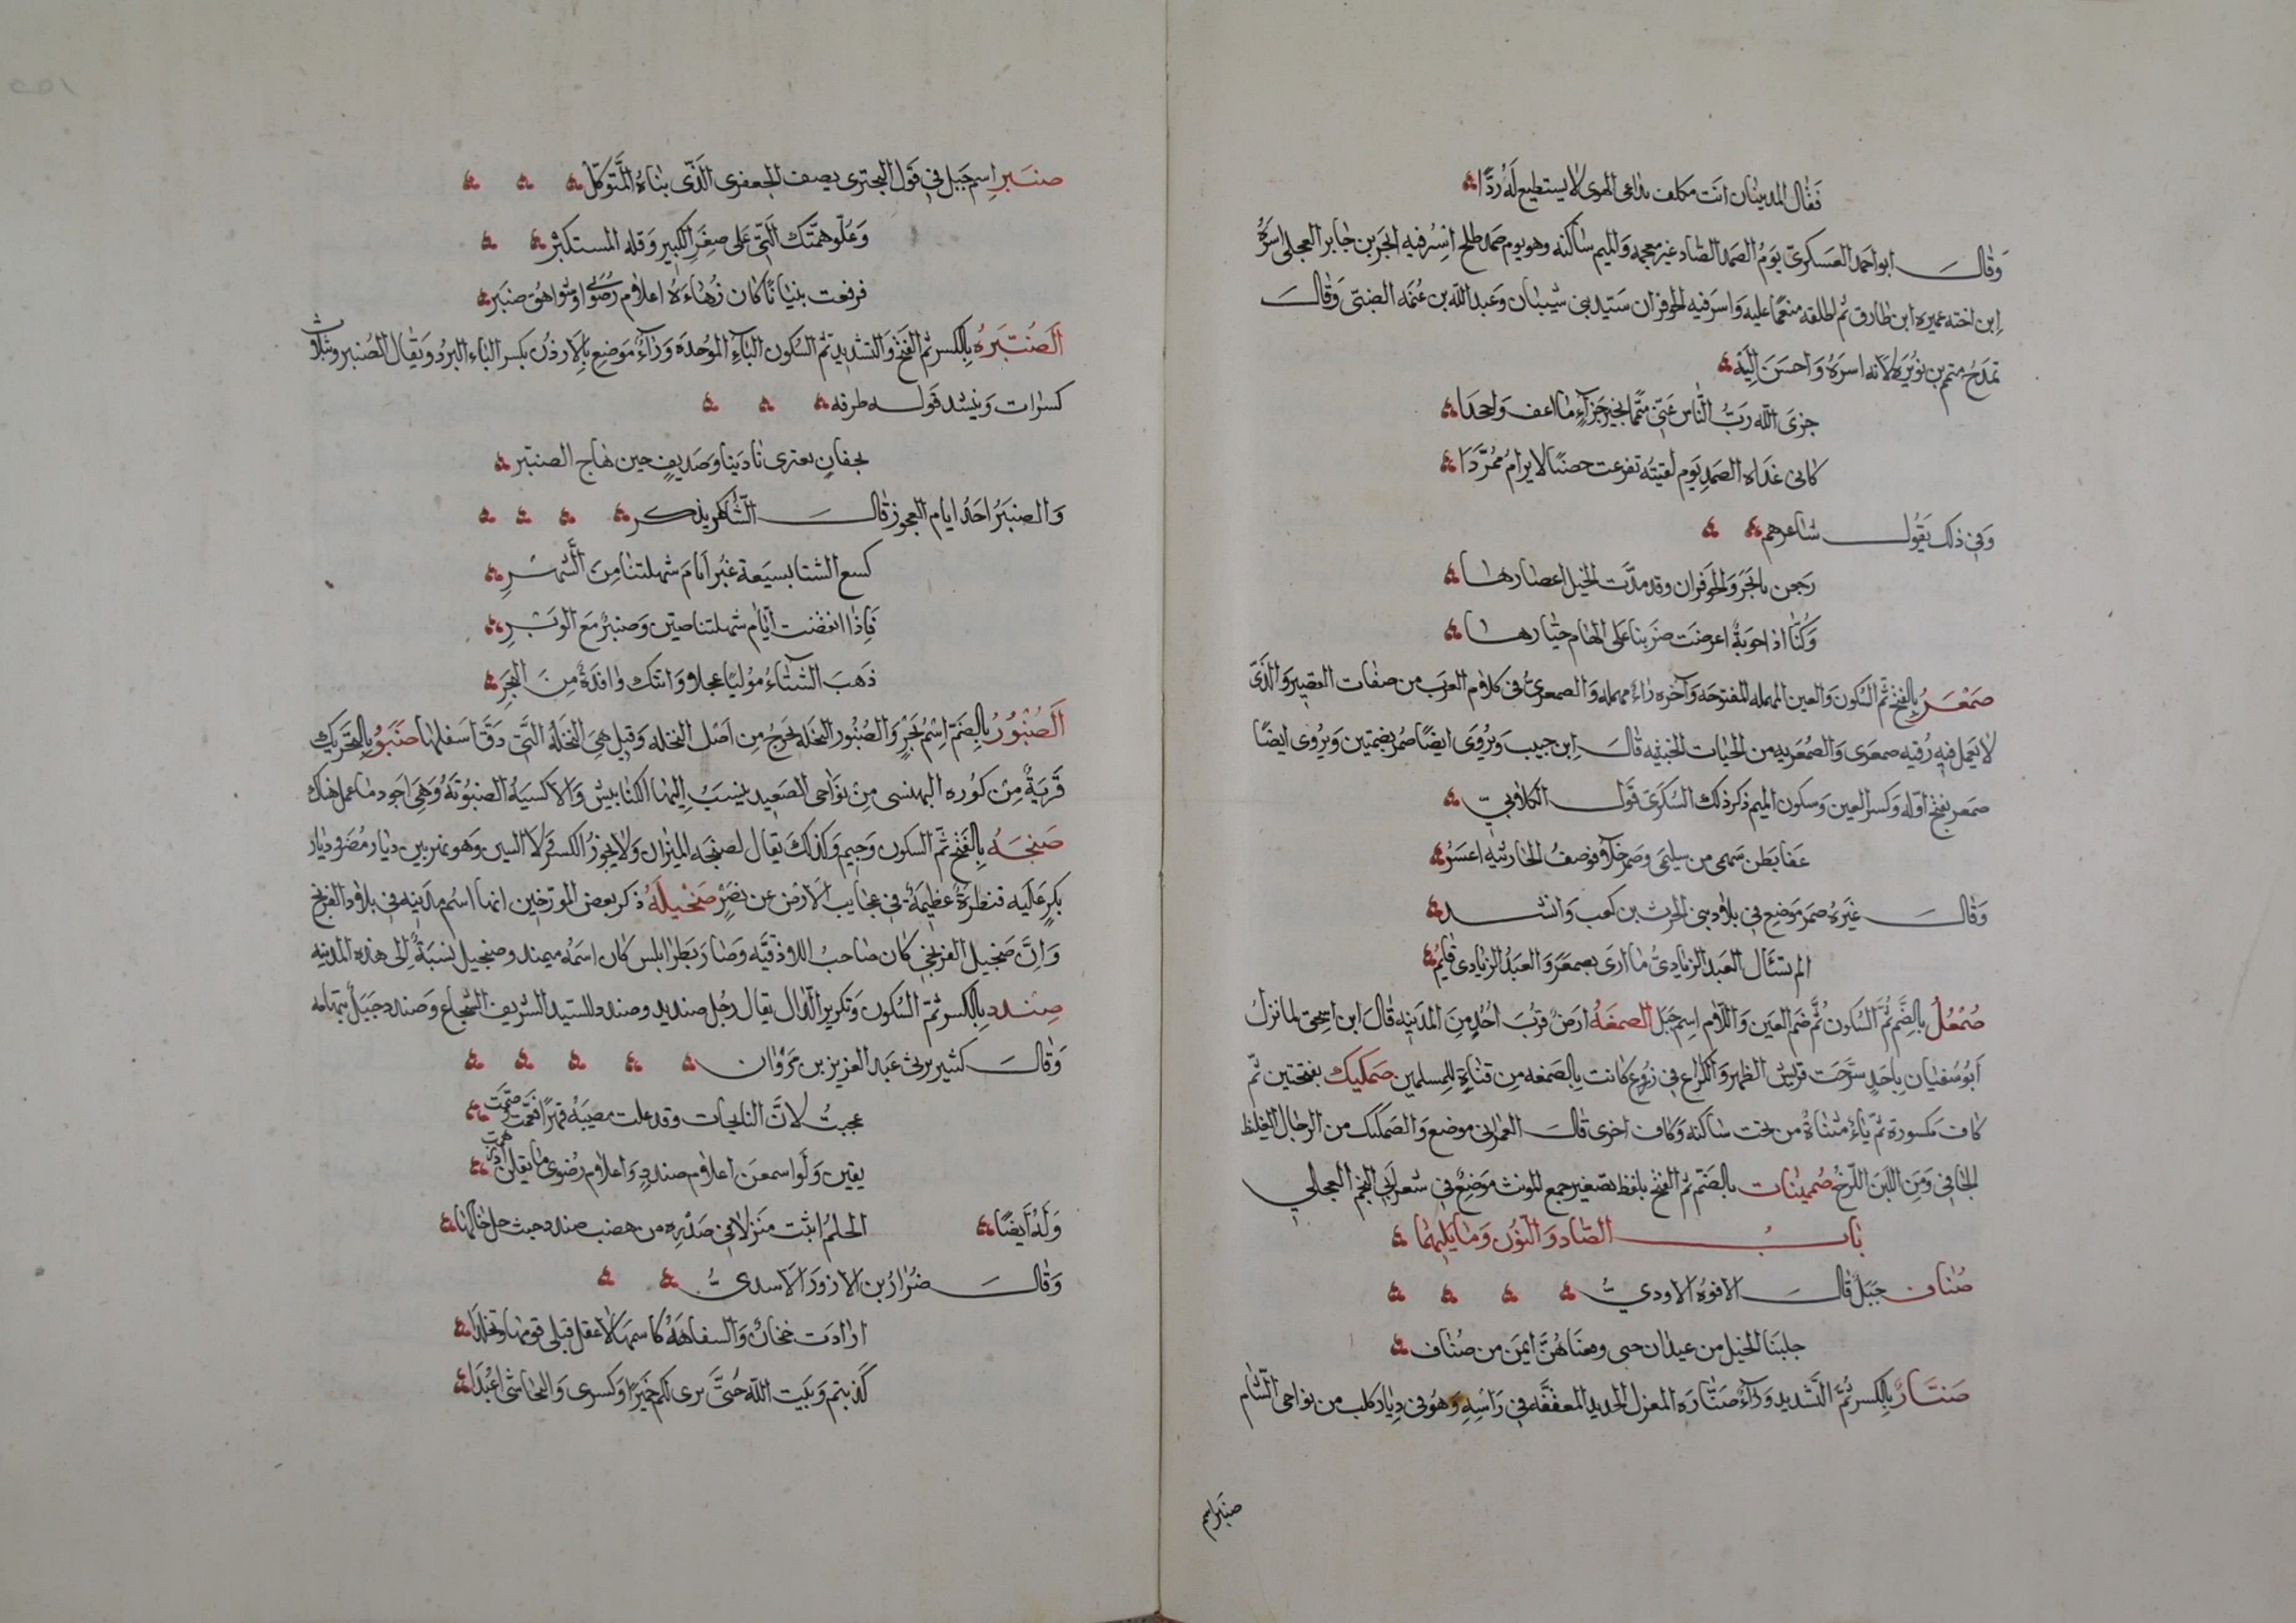 فقال المدينان انت مكلف بداعى الهوى لا يستطيع له ردًا
وقال ابو احمد العسكرى يوم الصمد الصاد غير معجمه والميم ساكنه وهو يوم صمد طلح اسر فيه ابجر بن جابر العجلى اسره
ابن اخته عميره ابن طارق ثم اطلقه منعما عليه واسر فيه الحوفزان سيد بنى شيبان وعبد الله بن عنمه الضبى وقال
تمدح متمم بن نويره لانه اسره واحسن اليه
جزى الله رب الناس عنى متمما بخير جزاء ما اعف وامجدا
كانى غداه الصمد يوم لقيته تفرعت حصنا لا يرام ممردا
وفى ذلك يقول شاعرهم
رجعن بابجر والحوفزان وقد مدت الخيل اعصارها
وكنا اذا حوبة اعرضت ضربنا على الهام جبارها
صمعر بالفتح ثم السكون والعين المهمله المفتوحه وآخره راء مهمله والصمعرى فى كلام العرب من صفات القصير والذى
لا يعمل فيه رقيه صمعرى والصمعريه من الحيات الخبيثه قال ابن حبيب ويروى ايضا صمر بضمتين ويروى ايضا
صمعر بفتح اوله وكسر العين وسكون الميم ذكر ذلك السكرى قول الكلابى
عفا بطن سهى من سليمى وصمعر خلاء فوصف الحارثيه اعسر
وقال غيره صمعر موضع فى بلاد بنى الحرث بن كعب وانشد
الم تسئال العبد الزيادى ما ارى بصمعر والعبد الزيادى قايم
صمعل بالضم ثم السكون ثم ضم العين واللام اسم جبل الصمغه ارض قرب احد من المدينه قال ابن اسحق لما نزل
ابو سفيان باحد سرحت قريش الظهر والكراع فى زروع كانت بالصمغه من قناة للمسلمين صمكيك بفتحتين ثم
كاف مكسورة ثم ياء مثناة من تحت ساكنه وكاف اخرى قال العمرانى موضع والصمكيك من الرجال الغليظ
الجافى ومن اللبن اللزج صمينات بالضم ثم الفتح بلفظ تصغير جمع المونث موضع فى شعر ابى النجم العجلى
باب الصاد والنون وما يليهما
صناف جبل قال الافوه الاودى
جلبنا الخيل من عيدان حتى وقعناهن ايمن من صناف
صنار بالكسر ثم التشديد وراء صنارة المغزل الحديد المعقفه فى راسه وهو فى ديار كلب من نواحى الشام
صنبر اسم
صنبر اسم جبل فى قول البحترى يصف الجعفرى الذى بناه المتوكل
وعلو همتك التى على صغر الكبير وقله المستكثر
فرفعت بنيانا كان زهاءه اعلام رضوى او شواهق صنبر
الصنبره بالكسر ثم الفتح والتشديد ثم السكون الباء الموحده وراء موضع بالاردن بكسر الباء البرد ويقال الصنبر وثلاث
كسرات وينشد قول طرفه
بجفان يعترى نادينا وسديف حين هاج الصنبر
والصنبر احد ايام العجوز قال الشاعر يذكر
كسع الشتا بسبعة غبر ايام شهلتنا من الشهر
فاذا انقضت ايام شهلتنا صن وصنبر مع الوبر
ذهب الشتاء موليا عجلا واتتك وافدة من النجر
الصنبور بالضم اسم بحر والصنبور النخله تخرج من اصل النخله وقيل هى النخله التى دق اسفلها صنبو بالتحريك
قرية من كوره البهنسى من نواحى الصعيد ينسب اليها الكنابيش والاكسيه الصنبويه وهى اجود ما عمل هناك
صنجه بالفتح ثم السكون وجيم وكذلك يقال لصنجه الميزان ولا يجوز الكسر ولا السين وهو نهر بين ديار مضر وديار
بكر عليه قنطرة عظيمة فى عجايب الارض عن نصر صنجيله ذكر بعض المورخين انها اسم مدينه فى بلاد الفرنج
وان صنجيل الفرنجى كان صاحب اللاذقيه وصار بطرابلس كان اسمه ميمند وصنجيل نسبة الى هذه المدينه
صندد بالكسر ثم السكون وتكرير الدال يقال رجل صنديد وصندد للسيد الشريف الشجاع وصندد جبل بتهامه
وقال كثير يرثى عبد العزيز بن مروان
عجبت لان النايحات وقد علت مصيبه قهرا فعمت وصمت
يقين ولو اسمعن اعلام صندد واعلام رضوى ما يقلن ادرهمت
وله ايضا الحلم اثبت منزلا فى صدره من هضب صندد حيث حل خيالها
وقال ضرار بن الازور الاسدى
ارادت حجان والسفاهة كاسمها لاعقل قتلى قومها وتخلدا
كذبتم وبيت الله حتى نرى لكم حميرا وكسرى والنجاشى اعبدا